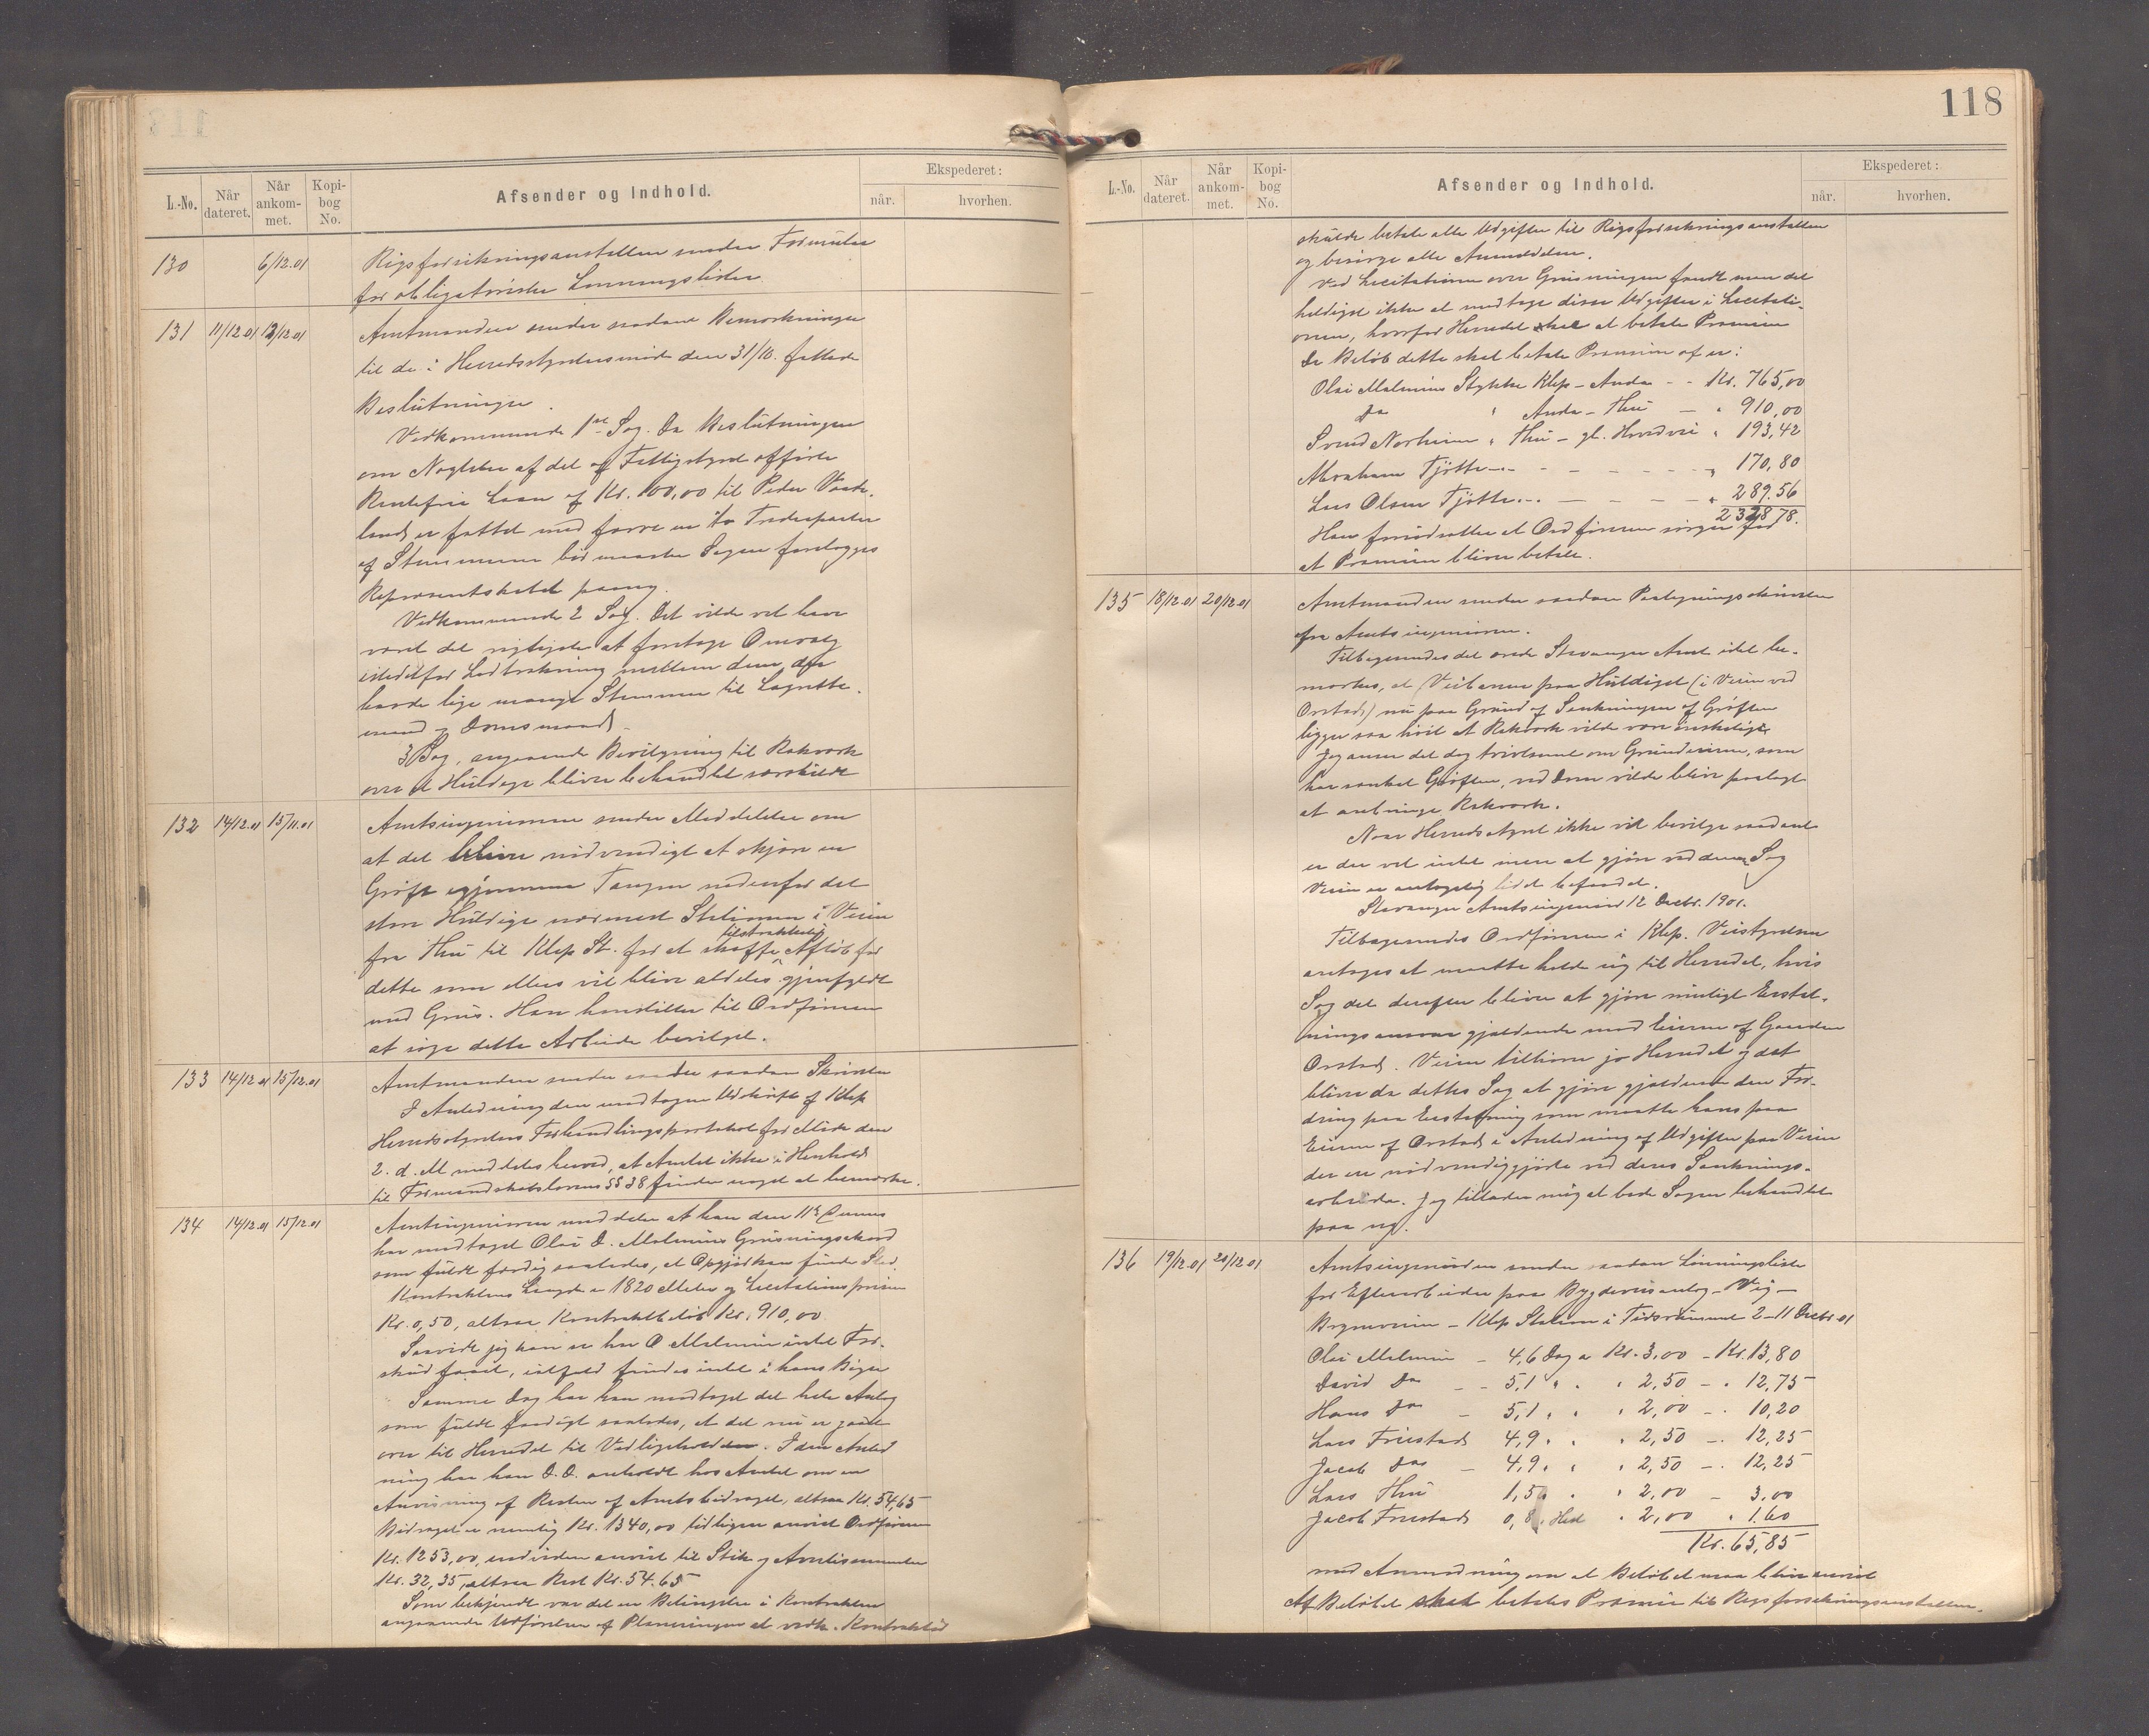 118
L.-No. Når dateret. Når ankommet. Kopibog No. Afsender og Indhold. Ekspederet: når. hvorhen.
130 6/12.01 Rigsforsikringsanstalten sender Formular
for obligatoriske Lønningslister
131 11/12.01 12/12.01 Amtmanden sender saadane Bemærkninger
til de i Herredsstyrelsesmøde den 31/10. fattede
Beslutninger.
Vedkommende 1ste Sag. Da Beslutningen
om Nægtelse af det af Fattigstyret afførte
Rentefrie Laan af Kr. 100,00 til Peder Vaade-
land er fattet med færre en to Trediepartier
af Stemmerne bør maaske Sagen forelægges
Repræsentskabet paany.
Vedkommende 2 Sag. Det vilde vel have
været det rigtigste at foretage Omvalg
istedetfor Lodtrækning mellem dem, der
havde lige mange Stemmer til Lagrette-
mænd og Domsmænd.
3 Sag, angaaende Bevilgning til Rækværk
over et Huldige bliver behandlet særskildt
132 14/12.01 15/11.01 Amtsingeniøren sender Meddelelse om
at det bliver nødvendigt at skjære en
Grøft igjennem Tangen nedenfor det
store Huldige nærmest Stationen i Veien
fra Thu til Klep St. for at skaffe tilstrækkelig Afløb for
dette som ellers vil blive aldeles gjenfyldt
med Grus. Han henstiller til Ordføreren
at søge dette Arbeide bevilget.
133 14/12.01 15/12.01 Amtmanden sender saadan Skrivelse
I Anledning den modtagne Udskrift af Klep
Herredsstyrelses Forhandlingsprotokol for Møde den
2. d. M meddeles herved, at Amtet ikke i Henhold
til Formandskabslovens §§ 38 finder noget at bemærke.
134 14/12.01 15/12.01 Amtsingeniøren meddeler at han den 11te Dennes
har modtaget Olai D. Malmins Grusningsakord
som fuldt færdig saaledes, at Opgjør kan finde Sted.
Kontraktens Længde er 1820 Meter og Licitationsprisen
Kr. 0,50, altsaa Kontraktbeløb Kr. 910,00
Saavidt jeg kan se har O Malmin intet For-
skud faaet, ialfald findes intet i hans Bøger
Samme Dag har han modtaget det hele Anlæg
som fuldt færdigt saaledes, at det nu er gaaet
over til Herredet til Vedligeholdelse. I den Anled
ning har han D.D. anholdt hos Amtet om en
Anvisning af Resten af Amtsbidraget, altsaa Kr. 54,65
Bidraget er nemlig Kr. 1340,00 tidligere anvist Ordføreren
Kr. 1253,00, endvidere anvist til Stik og Avertissementer
Kr. 32,35, altsaa Rest Kr. 54.65
Som bekjendt var det en Betingelse i Kontrakten
angaaende Udførelsen af Planeringen at vedk. Kontraktør
L.-No. Når dateret. Når ankommet. Kopibog No. Afsender og Indhold. Ekspederet: når. hvorhen.
skulde betale alle Udgifter til Rigsforsikringsanstalten
og besørge alle Anmeldelser.
Ved Licitationen over Grusningen fandt man det
heldigst ikke at medtage disse Udgifter i Licitati-
onen, hvorfor Herredet skal at betale Præmien
De Beløb dette skal betale Præmien af er:
Olai Malmins Stykke Klep - Anda - - Kr. 765,00
Do " Anda - Thu - " 910,00
Svend Norheim " Thu - gl. Hovedvei " 193,42
Abraham Tjøtta - - - - " 170,80
Lars Olsen Tjøtta - - - - " 289.56
2328 78.
Han forudsætter at Ordføreren sørger for
at Præmien bliver betalt.
135 18/12.01 20/12.01 Amtmanden sender saadan Paategningsskrivelse
fra Amtsingeniøren.
Tilbagesendes det ærede Stavanger Amt idet be-
mærkes, at Veibanen paa Huldiget (i Veien ved
Orstad) nu paa Grund af Senkningen af Grøften
ligger saa høit at Rækværk vilde være ønskeligt
Jeg anser det dog tvivlsomt om Grundeieren, som
har sænket Grøften, ved Dom vilde blive paalagt
at anbringe Rækværk.
Naar Herredsstyret ikke vil bevilge saadant
er der vel intet mere at gjøre ved denne Sag
Veien er antagelig lidet befærdet.
Stavanger Amtsingeniør 12 Decbr. 1901.
Tilbagesendes Ordføreren i Klep. Veistyrelsen
antages at maatte holde sig til Herredet, hvis
Sag det derefter bliver at gjøre muligt Erstat-
ningsansvar gjældende mod Eieren af Gaarden
Orstad. Veien tilhører jo Herredet og det
bliver da dettes Sag at gjøre gjældende den For-
dring paa Erstatning som maatte haves paa
Eieren af Orstad i Anledning af Udgifter paa Veien
der ere nødvendiggjorte ved deres Sænknings-
arbeide. Jeg tillader mig at bede Sagen behandlet
paa ny.
136 19/12.01 20/12.01 Amtsingeniøren sender saadan Lønningsliste
for Efterarbeider paa Bygdeveisanlæg - Vig -
Bryneveien - Klep Station i Tidsrummet 2-11 Decbr 01
Olai Malmin - 4,6 Dag a Kr. 3,00 - Kr. 13,80
David Do - - 5,1 " " " 2,50 - " 12,75
Hans Do - 5,1 " " " 2,00 - " 10,20
Lars Friestad 4,9 " " " 2,50 - " 12,25
Jacob Do - 4,9 " " " 2,50 - " 12,25
Lars Thu 1,50 " " 2,00 - 3,00
Jacob Friestad 0,8 " Hest " 2,00 " 1.60
Kr. 65,85
med Anmodning om at Beløbet maa blive anvist
Af Beløbet skal betales Præmie til Rigsforsikringsanstalten.